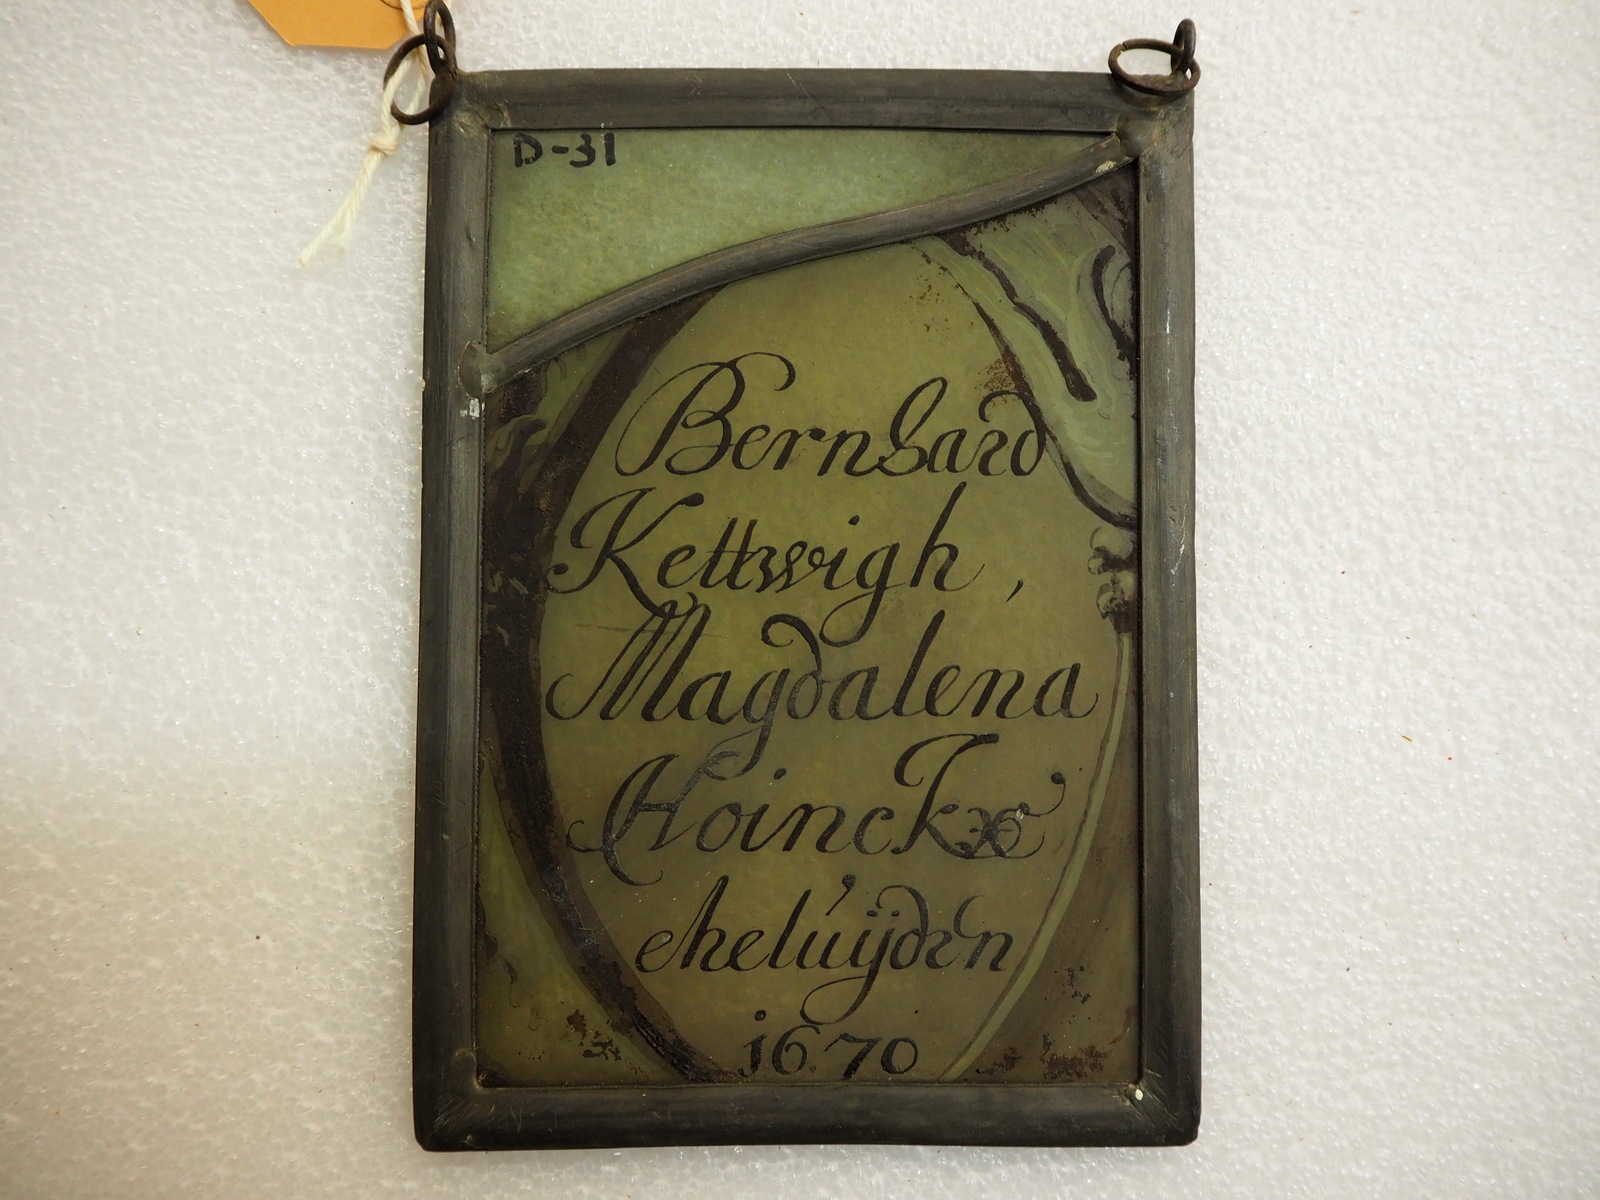 D-31
Bernhard
Kettwigh,
Magdalena
Hoinckx
eheluÿden
1670